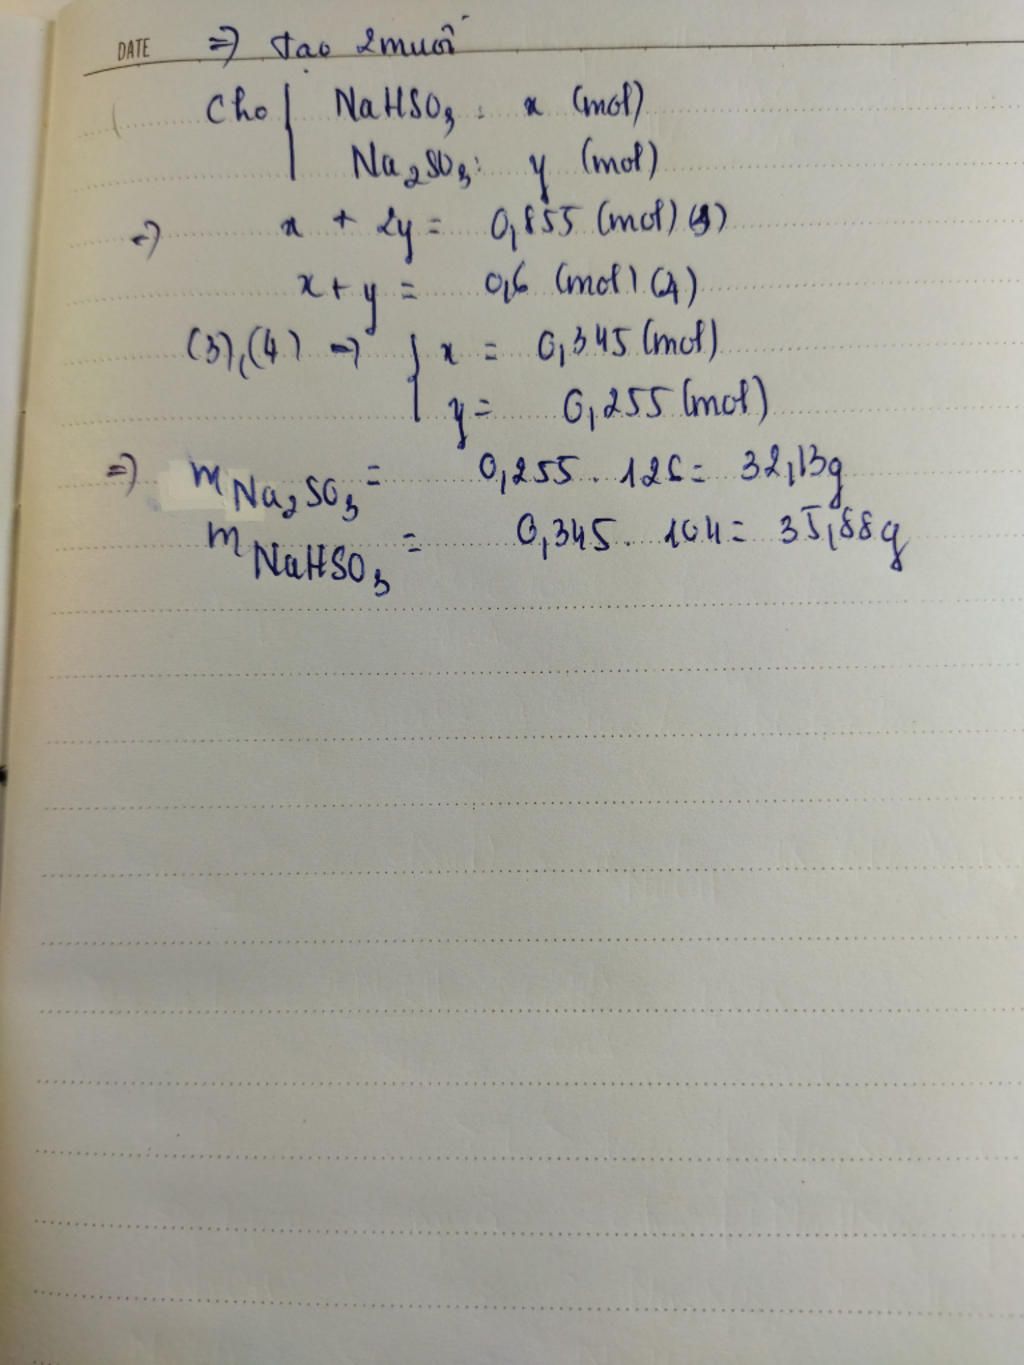 DATE ⇒ tạo 2 muối
Cho | NaHSO₃ : x (mol)
Na₂SO₃ : y (mol)
⇒ x + 2y = 0,855 (mol) (3)
x + y = 0,6 (mol) (4)
(3),(4) ⇒ { x = 0,345 (mol)
y = 0,255 (mol)
⇒ m Na₂SO₃ = 0,255 . 126 = 32,13g
m NaHSO₃ = 0,345 . 104 = 35,88g